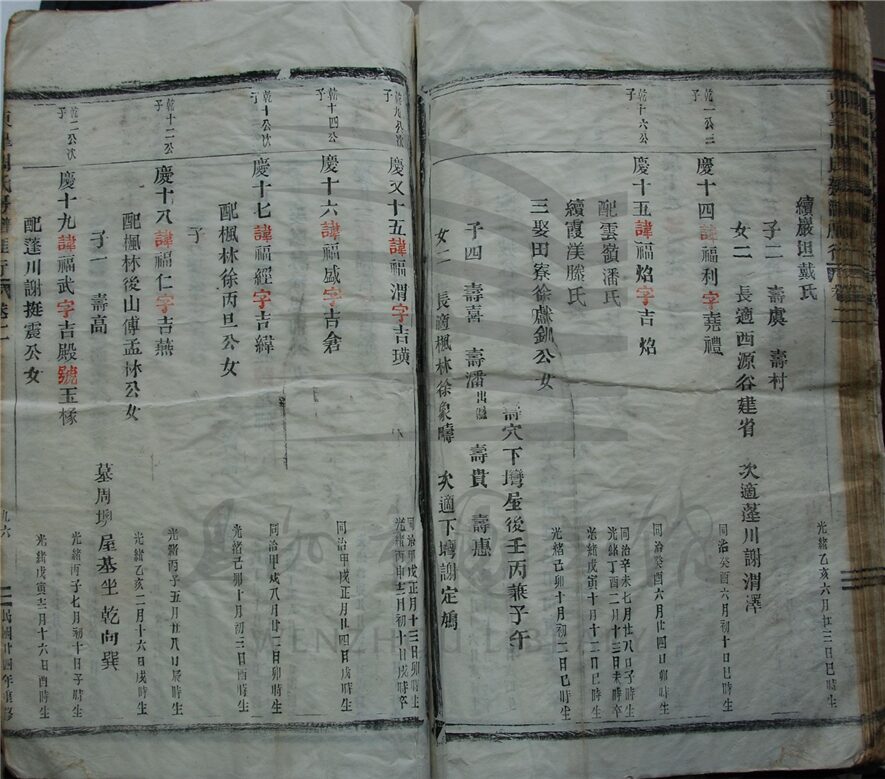 續巖坦戴氏
光緒乙亥六月廿三日巳時生
子二 壽虞 壽村
女二 長適西源谷建省 次適蓬川謝渭澤
乾一公三子
慶十四諱福利字堯禮
同治癸酉六月初十日巳時生
乾十六公子
慶十五諱福焰字吉焰
同治癸酉六月廿四日卯時生
配雲嶺潘氏
同治辛未七月廿八日子時生
光緒丁酉二月十三日未時卒
續霞渼滕氏
光緒戊寅十月十二日巳時生
三娶田寮徐獻釧公女
光緒己卯十月初二日巳時生
壽穴下塆屋後壬丙兼子午
子四 壽喜 壽潘出繼 壽貴 壽應
女二 長適楓林徐象疇 次適下塆謝定鴻
乾九公次子
慶又十五諱福渭字吉璜
同治甲戌正月十三日卯時生
光緒丙申十二月初十日戌時卒
乾十四公子
慶十六諱福盛字吉倉
同治甲戌正月廿四日戌時生
乾十公次子
慶十七諱福經字吉緯
同治甲戌八月廿二日卯時生
配楓林徐丙旦公女
光緒己卯十月初三日酉時生
子
乾十二公子
慶十八諱福仁字吉燕
光緒丙子五月廿八日辰時生
配楓林後山傅孟林公女
光緒乙亥二月十六日戌時生
子一 壽高
墓周墺屋基坐乾向巽
乾二公次子
慶十九諱福武字吉殿號玉樣
光緒丙子七月初十日子時生
配蓬川謝挺震公女
光緒戊寅十二月十六日酉時生
卷二
九六
民國廿四年重修
WENZHOU LIBRARY